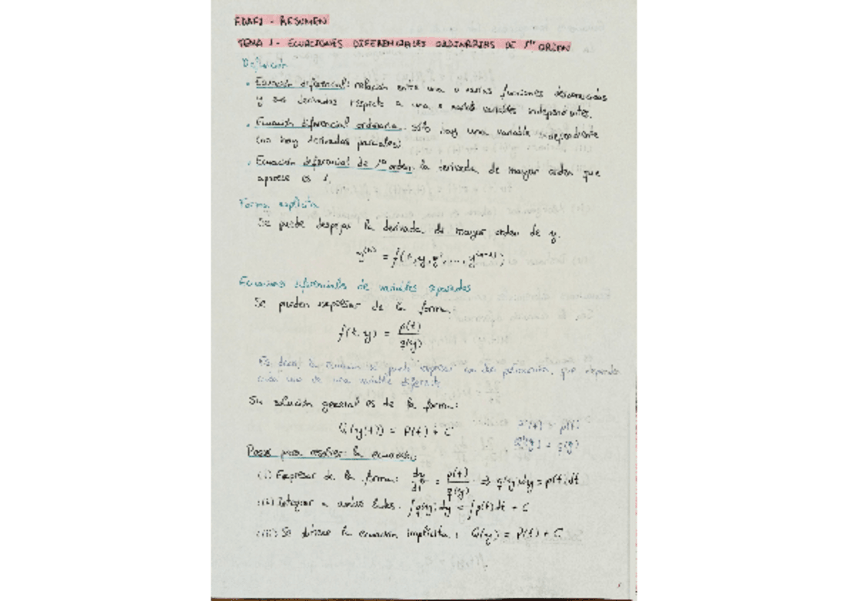 EDAF1 - RESUMEN
TEMA 1 - ECUACIONES DIFERENCIALES ORDINARIAS DE 1er ORDEN
Definición
• Ecuación diferencial: relación entre una o varias funciones desconocidas
y sus derivadas respecto a una o varias variables independientes.
• Ecuación diferencial ordinaria: sólo hay una variable independiente
(no hay derivadas parciales)
• Ecuación diferencial de 1er orden: la derivada de mayor orden que
aparece es 1.
Forma explícita
Se puede despejar la derivada de mayor orden de y.
y⁽ⁿ⁾ = f(t, y, y', ..., y⁽ⁿ⁻¹⁾)
Ecuaciones diferenciales de variables separadas
Se pueden expresar de la forma:
f(t, y) = p(t)/q(y)
Es decir, la función se puede expresar con dos que dependen
cada uno de una variable diferente
Su solución general es de la forma:
Q(y(t)) = P(t) + C
P'(t) = p(t)
Q'(y) = q(y)
Pasos para resolver la ecuación:
(i) Expresar de la forma: dy/dt = p(t)/q(y) ⇒ q(y)dy = p(t)dt
(ii) Integrar a ambos lados: ∫q(y)dy = ∫p(t)dt + C
(iii) Se obtiene la ecuación implícita: Q(y) = P(t) + C